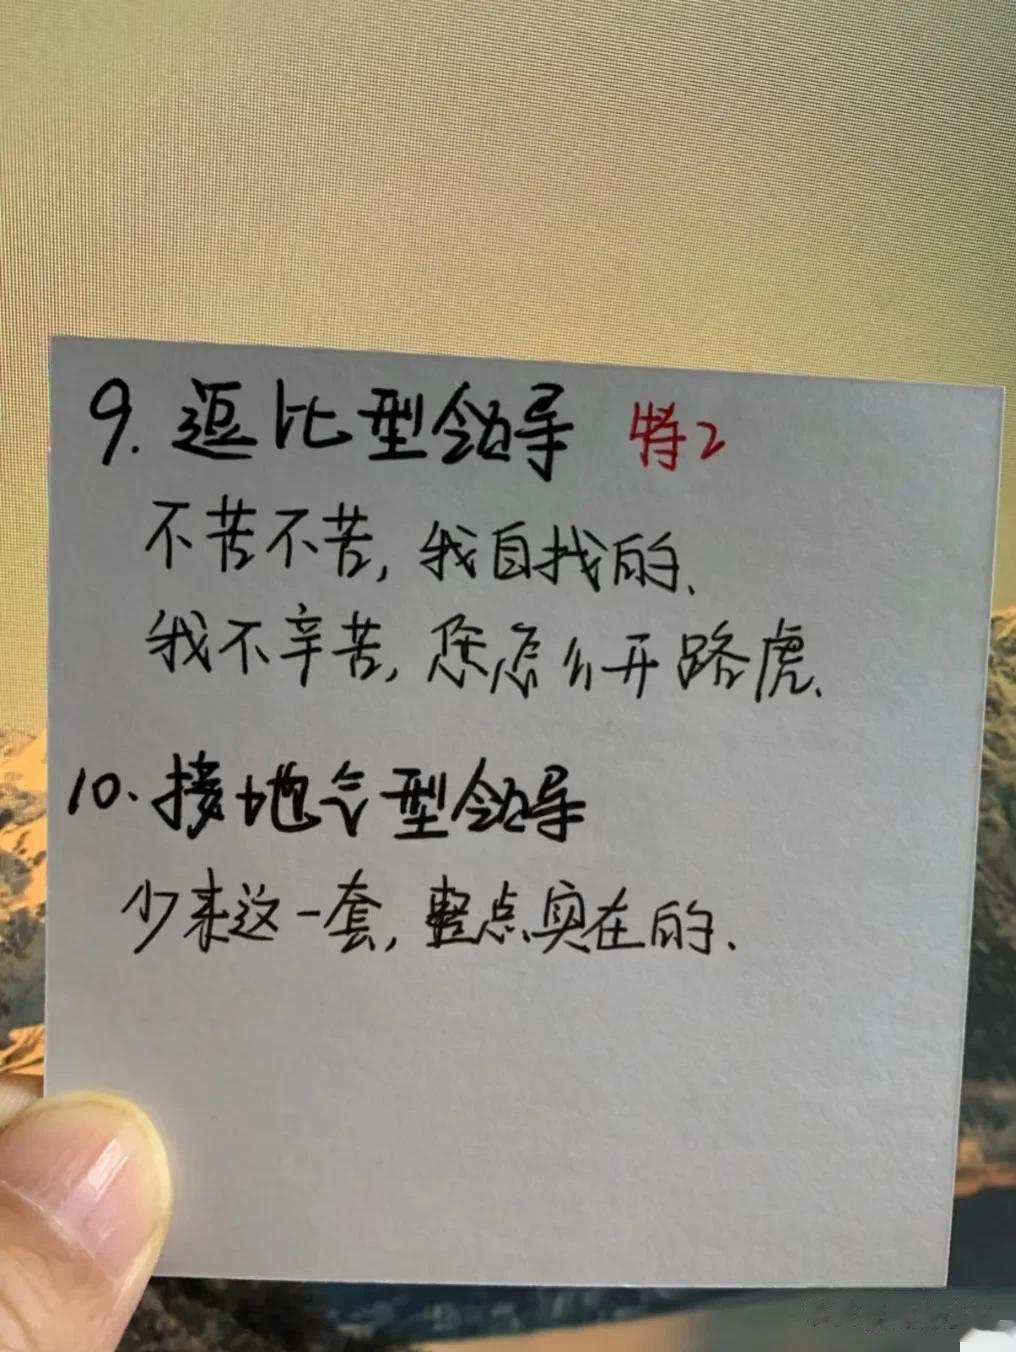 9. 逗比型领导 特2
不苦不苦,我自找的、
我不辛苦,您怎么开路虎、
10. 接地气型领导
少来这一套,整点实在的、